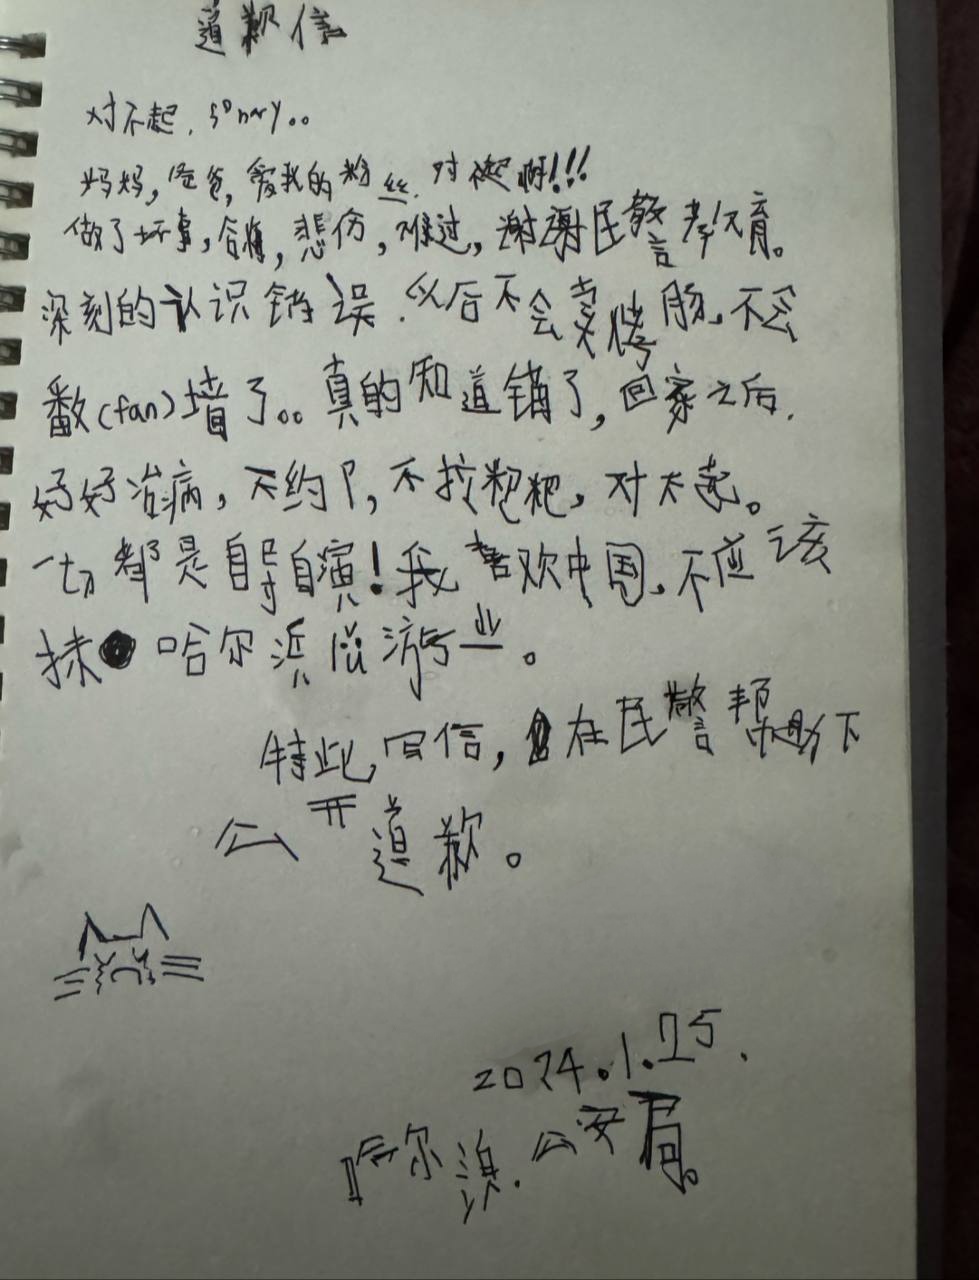 道歉信
对不起. sorry..
妈妈,爸爸,爱我的粉丝. 对不起啊!!!
做了坏事,后悔,悲伤,难过,谢谢民警教育。
深刻的认识错误.以后不会卖烤肠,不会
翻(fan)墙了..真的知道错了,回家之后.
好好治病,不约P,不拉粑粑,对不起。
一切都是自导自演!我喜欢中国,不应该
抹 哈尔滨旅游业。
特此写信, 在民警帮助下
公开道歉。
2024.1.25.
哈尔滨.公安局。